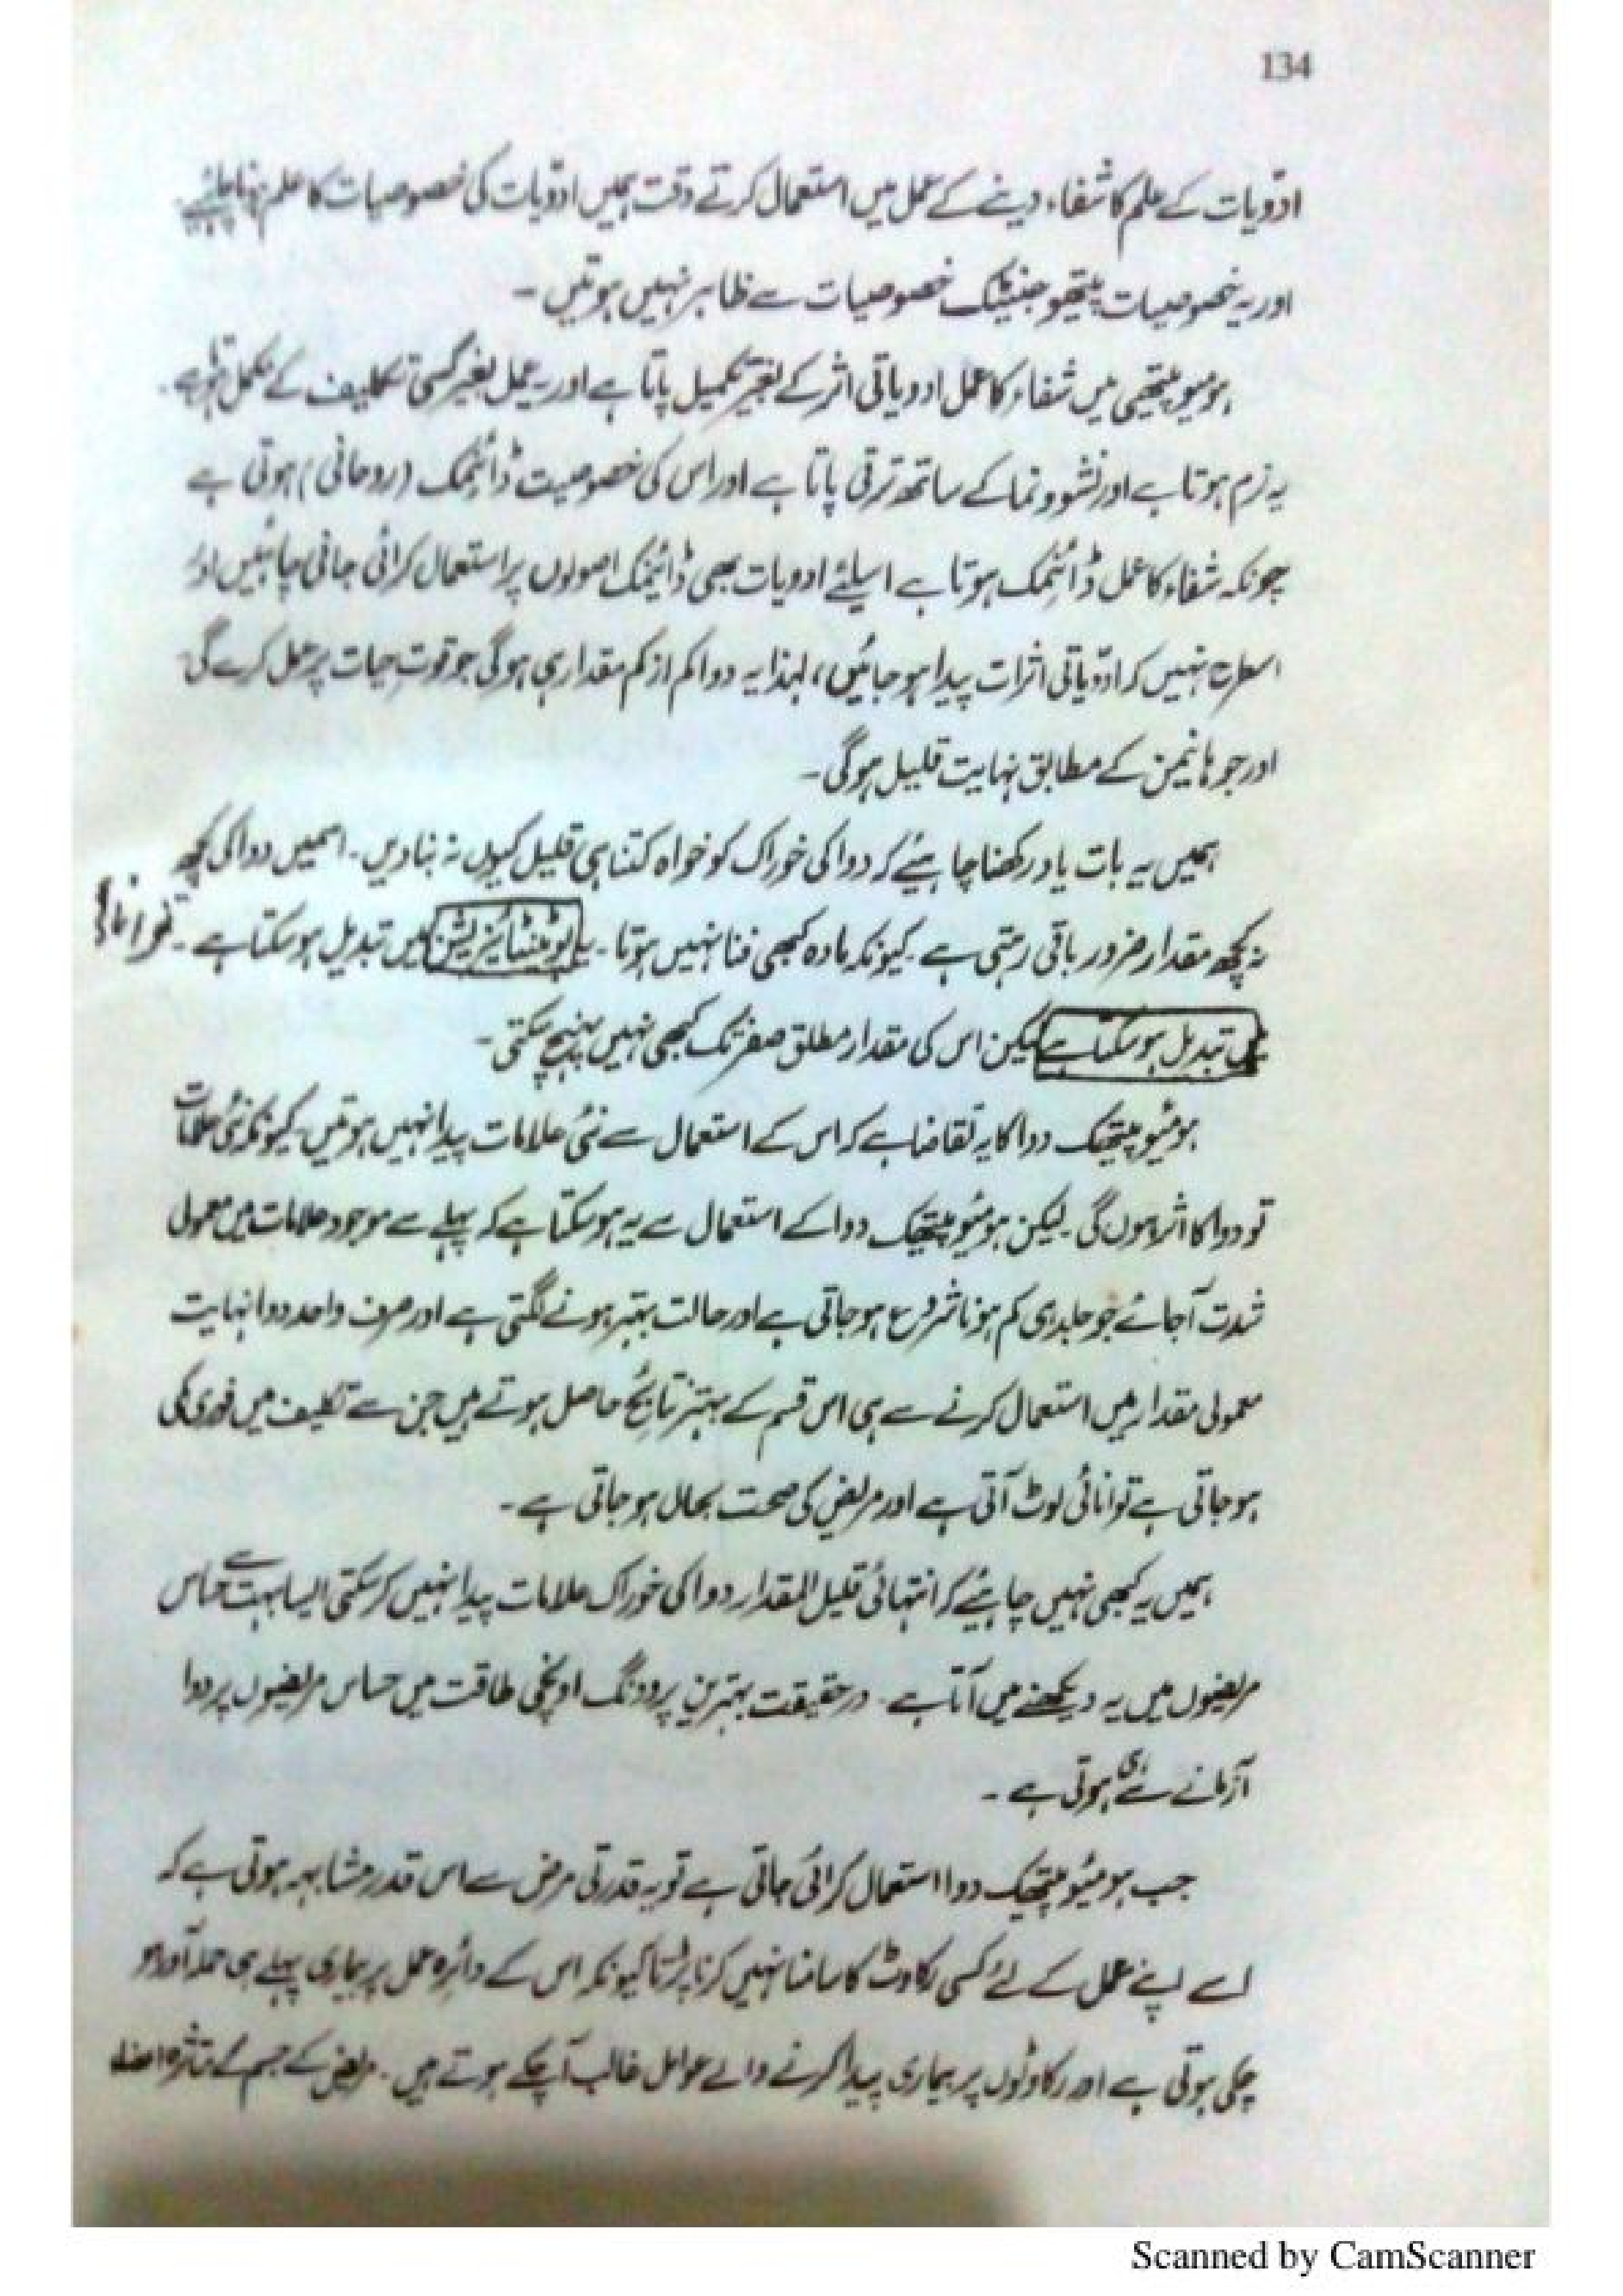 134
ادویات کے علم کا شفاء دینے کے عمل میں استعمال کرتے وقت ہمیں ادویات کی خصوصیات کا علم ہونا چاہئیے۔
اور یہ خصوصیات پیتھوجنیٹک خصوصیات سے ظاہر نہیں ہوتیں ۔
ہومیوپیتھی میں شفاء کا عمل ادویاتی اثر کے بغیر تکمیل پاتا ہے اور یہ عمل بغیر کسی تکلیف کے مکمل ہوتا ہے۔
یہ نرم ہوتا ہے اور نشوونما کے ساتھ ترقی پاتا ہے اور اس کی خصوصیت ڈائنمک (روحانی) ہوتی ہے
چونکہ شفاء کا عمل ڈائنمک ہوتا ہے اسلئے ادویات بھی ڈائنمک اصولوں پر استعمال کرائی جانی چاہئیں اور
اسطرح نہیں کہ ادویاتی اثرات پیدا ہو جائیں، لہذا یہ دوا کم از کم مقدار ہی ہوگی جو قوتِ حیات پر عمل کرے گی
اور جو ہانیمن کے مطابق نہایت قلیل ہوگی ۔
ہمیں یہ بات یاد رکھنا چاہئیے کہ دوا کی خوراک کو خواہ کتنا ہی قلیل کیوں نہ بنا دیں ۔ اسمیں دوا کی کچھ
نہ کچھ مقدار ضرور باقی رہتی ہے ۔ کیونکہ مادہ کبھی فنا نہیں ہوتا ۔ یہ پوٹینٹائیزیشن میں تبدیل ہو سکتا ہے ۔
میں تبدیل ہو سکتا ہے لیکن اس کی مقدار مطلق صفر تک کبھی نہیں پہنچ سکتی ۔
ہومیوپیتھک دوا کا یہ تقاضا ہے کہ اس کے استعمال سے نئی علامات پیدا نہیں ہوتیں ۔ کیونکہ نئی علامات
تو دوا کا اثر ہوں گی ۔ لیکن ہومیوپیتھک دوا کے استعمال سے یہ ہو سکتا ہے کہ پہلے سے موجود علامات میں معمولی
شدت آجائے جو جلد ہی کم ہونا شروع ہو جاتی ہے اور حالت بہتر ہونے لگتی ہے اور صرف واحد دوا نہایت
معمولی مقدار میں استعمال کرنے سے ہی اس قسم کے بہتر نتائج حاصل ہوتے ہیں جن سے تکلیف میں فوری کمی
ہو جاتی ہے توانائی لوٹ آتی ہے اور مریض کی صحت بحال ہو جاتی ہے ۔
ہمیں یہ کبھی نہیں چاہئیے کہ انتہائی قلیل المقدار دوا کی خوراک علامات پیدا نہیں کر سکتی ایسا بہت سے حساس
مریضوں میں یہ دیکھنے میں آتا ہے ۔ درحقیقت بہترین پروونگ اونچی طاقت میں حساس مریضوں پر دوا
آزمانے سے ہی ہوتی ہے ۔
جب ہومیوپیتھک دوا استعمال کرائی جاتی ہے تو یہ قدرتی مرض سے اس قدر مشابہہ ہوتی ہے کہ
اسے اپنے عمل کے لئے کسی رکاوٹ کا سامنا نہیں کرنا پڑتا کیونکہ اس کے دائرہ عمل پر بیماری پہلے ہی حملہ آور ہو
چکی ہوتی ہے اور رکاوٹوں پر بیماری پیدا کرنے والے عوامل غالب آچکے ہوتے ہیں ۔ مریض کے جسم کے متاثرہ اعضاء
Scanned by CamScanner